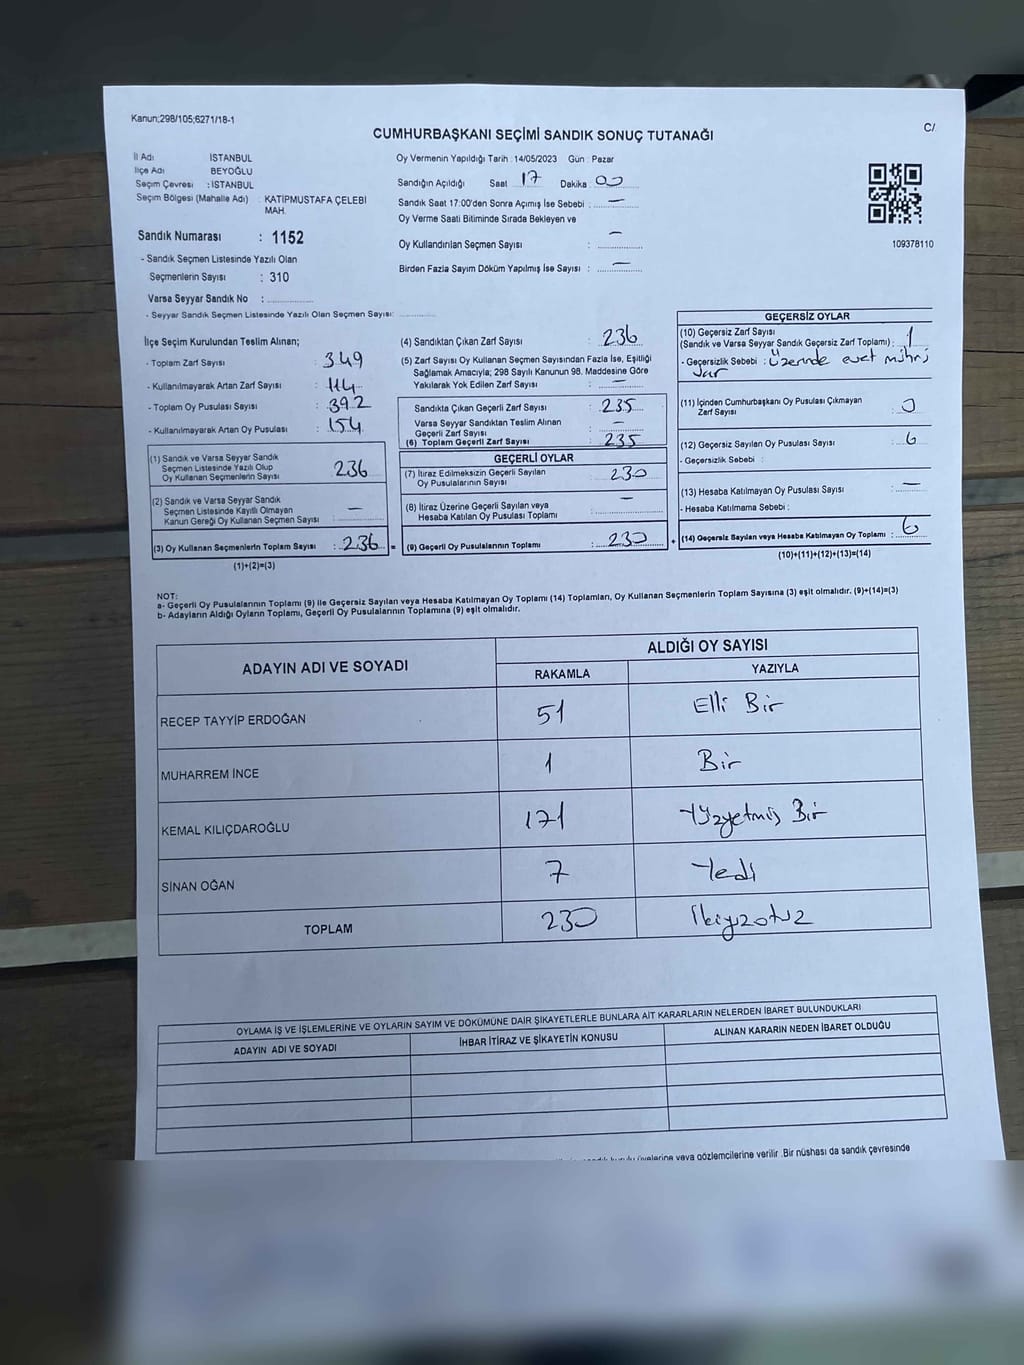 Kanun;298/105;6271/18-1
C/
CUMHURBAŞKANI SEÇİMİ SANDIK SONUÇ TUTANAĞI
İl Adı İSTANBUL
İlçe Adı BEYOĞLU
Seçim Çevresi : İSTANBUL
Seçim Bölgesi (Mahalle Adı) : KATİPMUSTAFA ÇELEBİ
MAH.
Sandık Numarası : 1152
- Sandık Seçmen Listesinde Yazılı Olan
Seçmenlerin Sayısı : 310
Varsa Seyyar Sandık No :
- Seyyar Sandık Seçmen Listesinde Yazılı Olan Seçmen Sayısı:
Oy Vermenin Yapıldığı Tarih : 14/05/2023 Gün : Pazar
Sandığın Açıldığı Saat 17 Dakika 00
Sandık Saat 17:00'den Sonra Açımış İse Sebebi : —
Oy Verme Saati Bitiminde Sırada Bekleyen ve
Oy Kullandırılan Seçmen Sayısı : —
Birden Fazla Sayım Döküm Yapılmış İse Sayısı : —
109378110
İlçe Seçim Kurulundan Teslim Alınan;
- Toplam Zarf Sayısı : 349
- Kullanılmayarak Artan Zarf Sayısı : 114
- Toplam Oy Pusulası Sayısı : 392
- Kullanılmayarak Artan Oy Pusulası : 154
(1) Sandık ve Varsa Seyyar Sandık
Seçmen Listesinde Yazılı Olup
Oy Kullanan Seçmenlerin Sayısı 236
(2) Sandık ve Varsa Seyyar Sandık
Seçmen Listesinde Kayılı Olmayan
Kanun Gereği Oy Kullanan Seçmen Sayısı : —
(3) Oy Kullanan Seçmenlerin Toplam Sayısı : 236 =
(1)+(2)=(3)
(4) Sandıktan Çıkan Zarf Sayısı : 236
(5) Zarf Sayısı Oy Kullanan Seçmen Sayısından Fazla İse, Eşitliği
Sağlamak Amacıyla; 298 Sayılı Kanunun 98. Maddesine Göre
Yakılarak Yok Edilen Zarf Sayısı : —
Sandıkta Çıkan Geçerli Zarf Sayısı : 235
Varsa Seyyar Sandıktan Teslim Alınan
Geçerli Zarf Sayısı : —
(6) Toplam Geçerli Zarf Sayısı : 235
GEÇERLİ OYLAR
(7) İtiraz Edilmeksizin Geçerli Sayılan
Oy Pusulalarının Sayısı : 230
(8) İtiraz Üzerine Geçerli Sayılan veya
Hesaba Katılan Oy Pusulası Toplamı : —
(9) Geçerli Oy Pusulalarının Toplamı : 230 +
GEÇERSİZ OYLAR
(10) Geçersiz Zarf Sayısı
(Sandık ve Varsa Seyyar Sandık Geçersiz Zarf Toplamı) : 1
- Geçersizlik Sebebi : Üzerinde evet mührü
var
(11) İçinden Cumhurbaşkanı Oy Pusulası Çıkmayan
Zarf Sayısı : 0
(12) Geçersiz Sayılan Oy Pusulası Sayısı : 6
- Geçersizlik Sebebi :
(13) Hesaba Katılmayan Oy Pusulası Sayısı : —
- Hesaba Katılmama Sebebi :
(14) Geçersiz Sayılan veya Hesaba Katılmayan Oy Toplamı : 6
(10)+(11)+(12)+(13)=(14)
NOT:
a- Geçerli Oy Pusulalarının Toplamı (9) ile Geçersiz Sayılan veya Hesaba Katılmayan Oy Toplamı (14) Toplamları, Oy Kullanan Seçmenlerin Toplam Sayısına (3) eşit olmalıdır. (9)+(14)=(3)
b- Adayların Aldığı Oyların Toplamı, Geçerli Oy Pusulalarının Toplamına (9) eşit olmalıdır.
ADAYIN ADI VE SOYADI ALDIĞI OY SAYISI
RAKAMLA YAZIYLA
RECEP TAYYİP ERDOĞAN 51 Elli Bir
MUHARREM İNCE 1 Bir
KEMAL KILIÇDAROĞLU 171 Yüzyetmiş Bir
SİNAN OĞAN 7 Yedi
TOPLAM 230 İkiyüzotuz
OYLAMA İŞ VE İŞLEMLERİNE VE OYLARIN SAYIM VE DÖKÜMÜNE DAİR ŞİKAYETLERLE BUNLARA AİT KARARLARIN NELERDEN İBARET BULUNDUKLARI
ADAYIN ADI VE SOYADI İHBAR İTİRAZ VE ŞİKAYETİN KONUSU ALINAN KARARIN NEDEN İBARET OLDUĞU
üyelerine veya gözlemcilerine verilir .Bir nüshası da sandık çevresinde